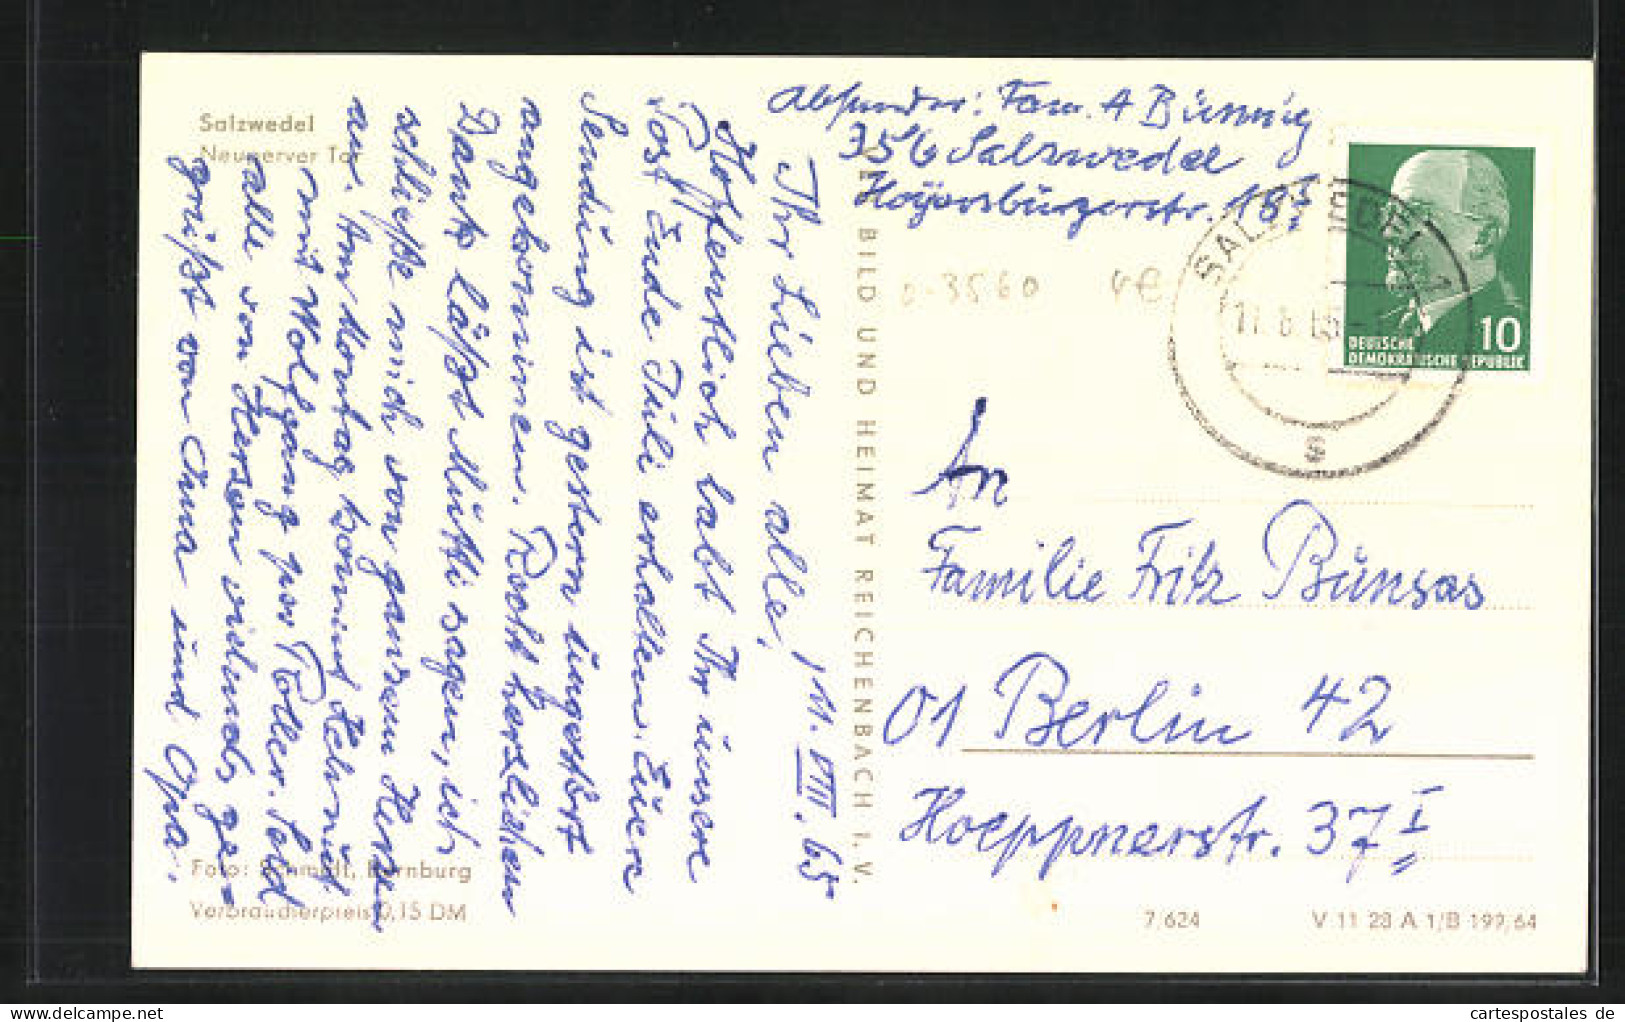 Salzwedel
Neuperver Tor
Absender: Fam. A Bünnig
356 Salzwedel
Hoyersburgerstr. 18 I
Ihr Lieben alle, 11. VIII. 65
Hoffentlich habt Ihr unsere
Post Ende Juli erhalten. Eure
Sendung ist gestern ungestört
angekommen. Recht herzlichen
Dank läßt Mutti sagen, ich
schließe mich von ganzem Herzen
an. Am Montag kommt Helmut
mit Wolfgang per Roller. Seid
alle von Herzen vielmals ge-
grüßt von Oma und Opa.
BILD UND HEIMAT REICHENBACH I. V.
0-3560 4€
SALZWEDEL 1
11.8.65
s
10
DEUTSCHE
DEMOKRATISCHE REPUBLIK
An
Familie Fritz Bünsas
01 Berlin 42
Hoeppnerstr. 37 I
Foto: Schmidt, Bernburg
Verbraucherpreis 0,15 DM
7/624 V 11 28 A 1/B 199/64
cartespostales de